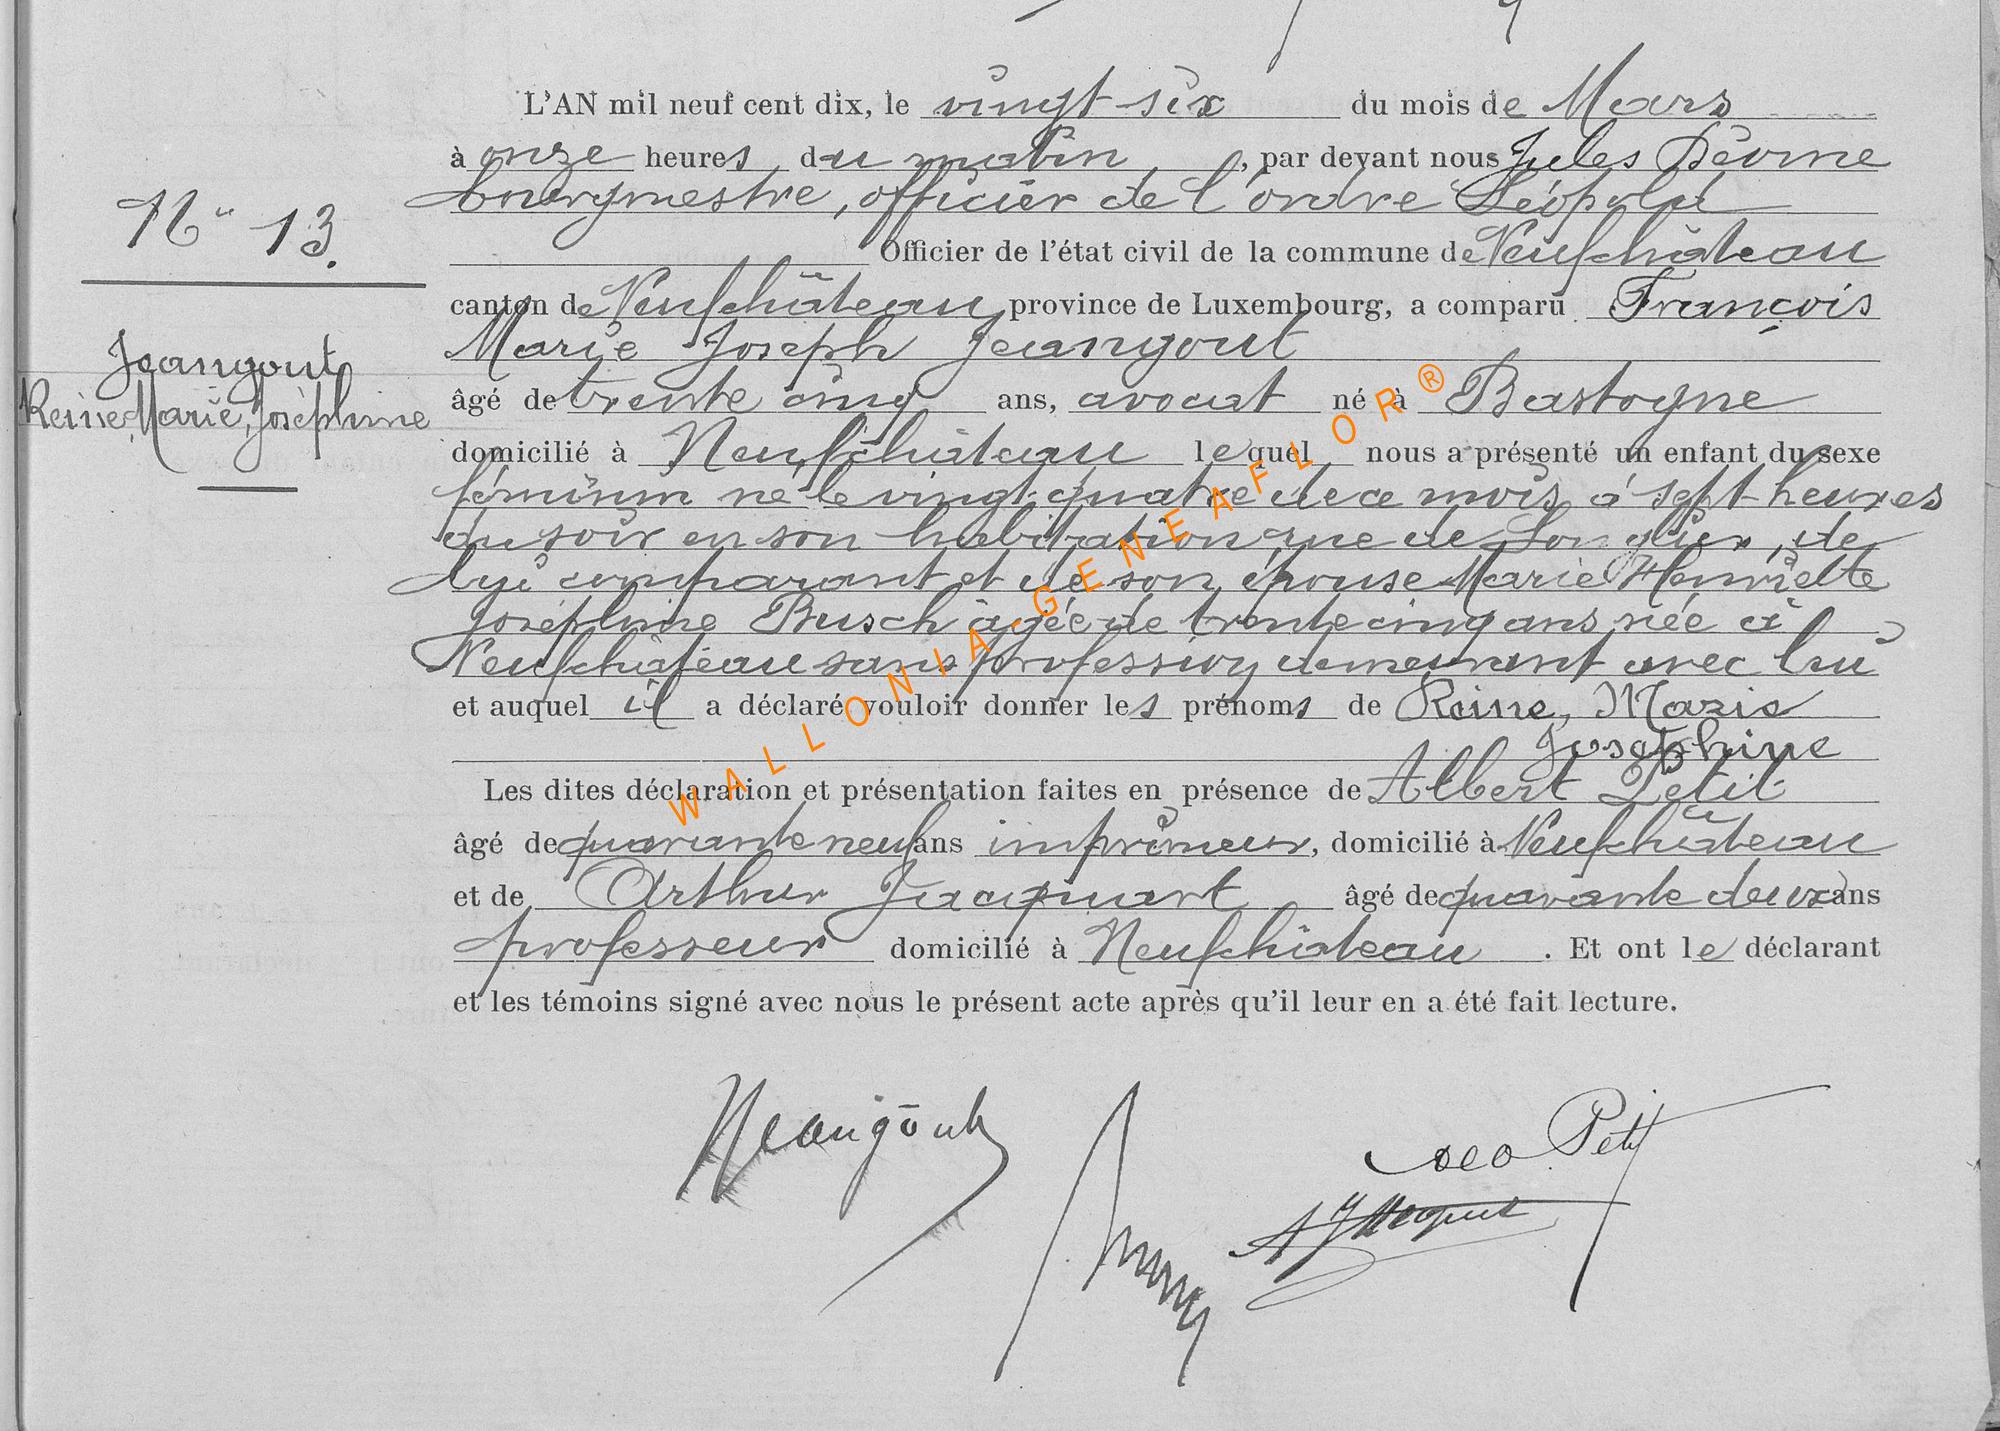 L'AN mil neuf cent dix, le vingt six du mois de Mars
à onze heures du matin, par devant nous Jules
bourgmestre, officier de l'ordre Léopold
Officier de l'état civil de la commune de Neufchâteau
canton de Neufchâteau province de Luxembourg, a comparu François
Marie Joseph Jeangout
âgé de trente cinq ans, avocat né à Bastogne
domicilié à Neufchâteau lequel nous a présenté un enfant du sexe
féminin né le vingt-quatre de ce mois à sept heures
du soir en son habitation rue de Longlier, de
lui comparant et de son épouse Marie Henriette
Joséphine Busch âgée de trente cinq ans née à
Neufchâteau sans profession demeurant avec lui
et auquel il a déclaré vouloir donner les prénoms de Reine, Marie
Josephine
Les dites déclaration et présentation faites en présence de Albert Petit
âgé de quarante neuf ans imprimeur, domicilié à Neufchâteau
et de Arthur Jacquart âgé de quarante deux ans
professeur domicilié à Neufchâteau. Et ont le déclarant
et les témoins signé avec nous le présent acte après qu'il leur en a été fait lecture.
N° 13.
Jeangout
Reine, Marie, Joséphine
Jeangout
Petit
A Jacquart
WALLONIA-GENEAFLOR®